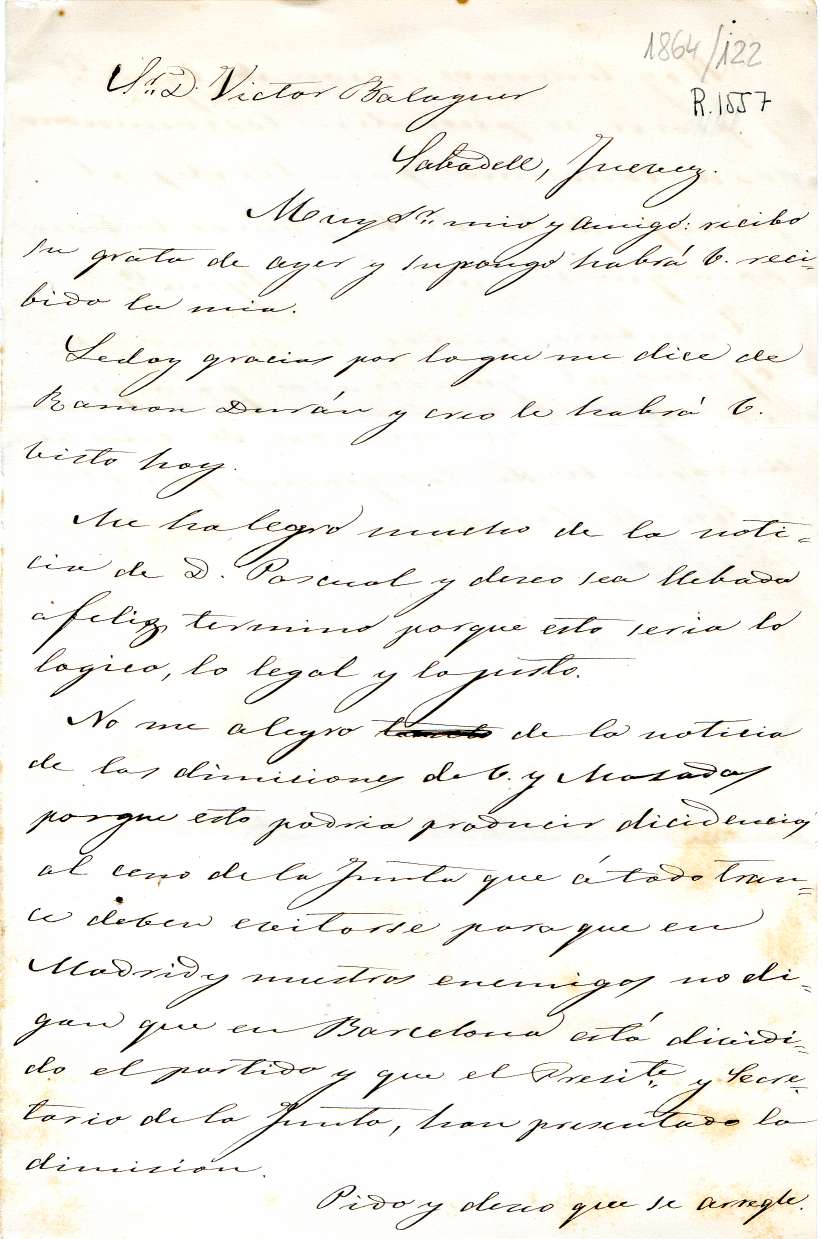 1864/122
R. 1557
Sr. D. Victor Balaguer
Sabadell, Juevez.
Muy Sr. mio y amigo: recibo
su grata de ayer y supongo habrá V. reci-
bido la mia.
Le doy gracias por lo que me dice de
Ramon Durán y creo le habrá V.
visto hoy.
Me halegro mucho de la noti-
cia de D. Pascual y deseo sea llebada
a feliz termino porque esto seria lo
logico, lo legal y lo justo.
No me alegro de la noticia
de las dimiciones de V. y Mosadas
porque esto podria producir dicidencias
al ceno de la Junta que á todo tran-
ce deben evitarse para que en
Madrid y nuestros enemigos no di-
gan que en Barcelona está dicidi-
do el partido y que el Presite. y Secre-
tario de la Junta, han presentado la
dimision.
Pido y deseo que se arregle.